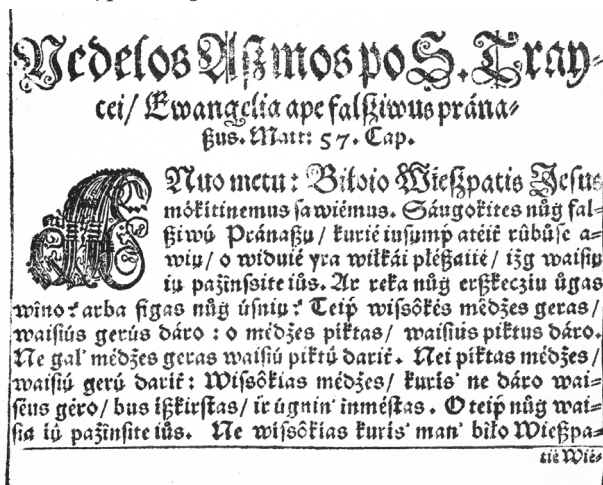 Nedelos Aßmos po S. Tray⸗
cei/ Ewangelia ape falßiwus prána⸗
ßus. Matt: 57. Cap.
ANuo metu: Biłoio Wießpatis Jesus
mókitinemus sawiémus. Sáugokites nůg fal⸗
ßiwų Pránaßų/ kurié iusump ateit růbůse a⸗
wių/ o widuié yra wiłkái pleßaitié/ ižg waisių
ių pažinssite iůs. Ar reka nůg erßkecziu ůgas
wîno? arba figas nůg úsnių? Teip wissôkés mêdżes geras/
waisiús gerús dáro : o médżes piktas/ waisius piktus dáro.
Ne gal' médżes geras waisių piktų darit. Nei piktas médżes/
waisių gerų darit : Wissôkias médżes/ kuris' ne dáro wai⸗
sēus géro/ bus ißkirstas/ ir úgnin' inméstas. O teip nůg wai⸗
sia ių pažinsite iůs. Ne wissôkias kuris' man' biło Wießpa⸗
tie Wié⸗